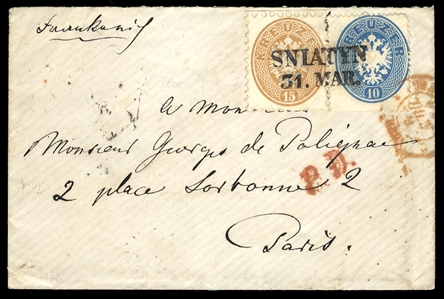 Frankreich
KREUZER KREUZER
SNIATYN
31. MAR.
15 10
A Monsieur
Monsieur Georges de Polignac
2 place Sorbonne 2
P.D.
Paris.